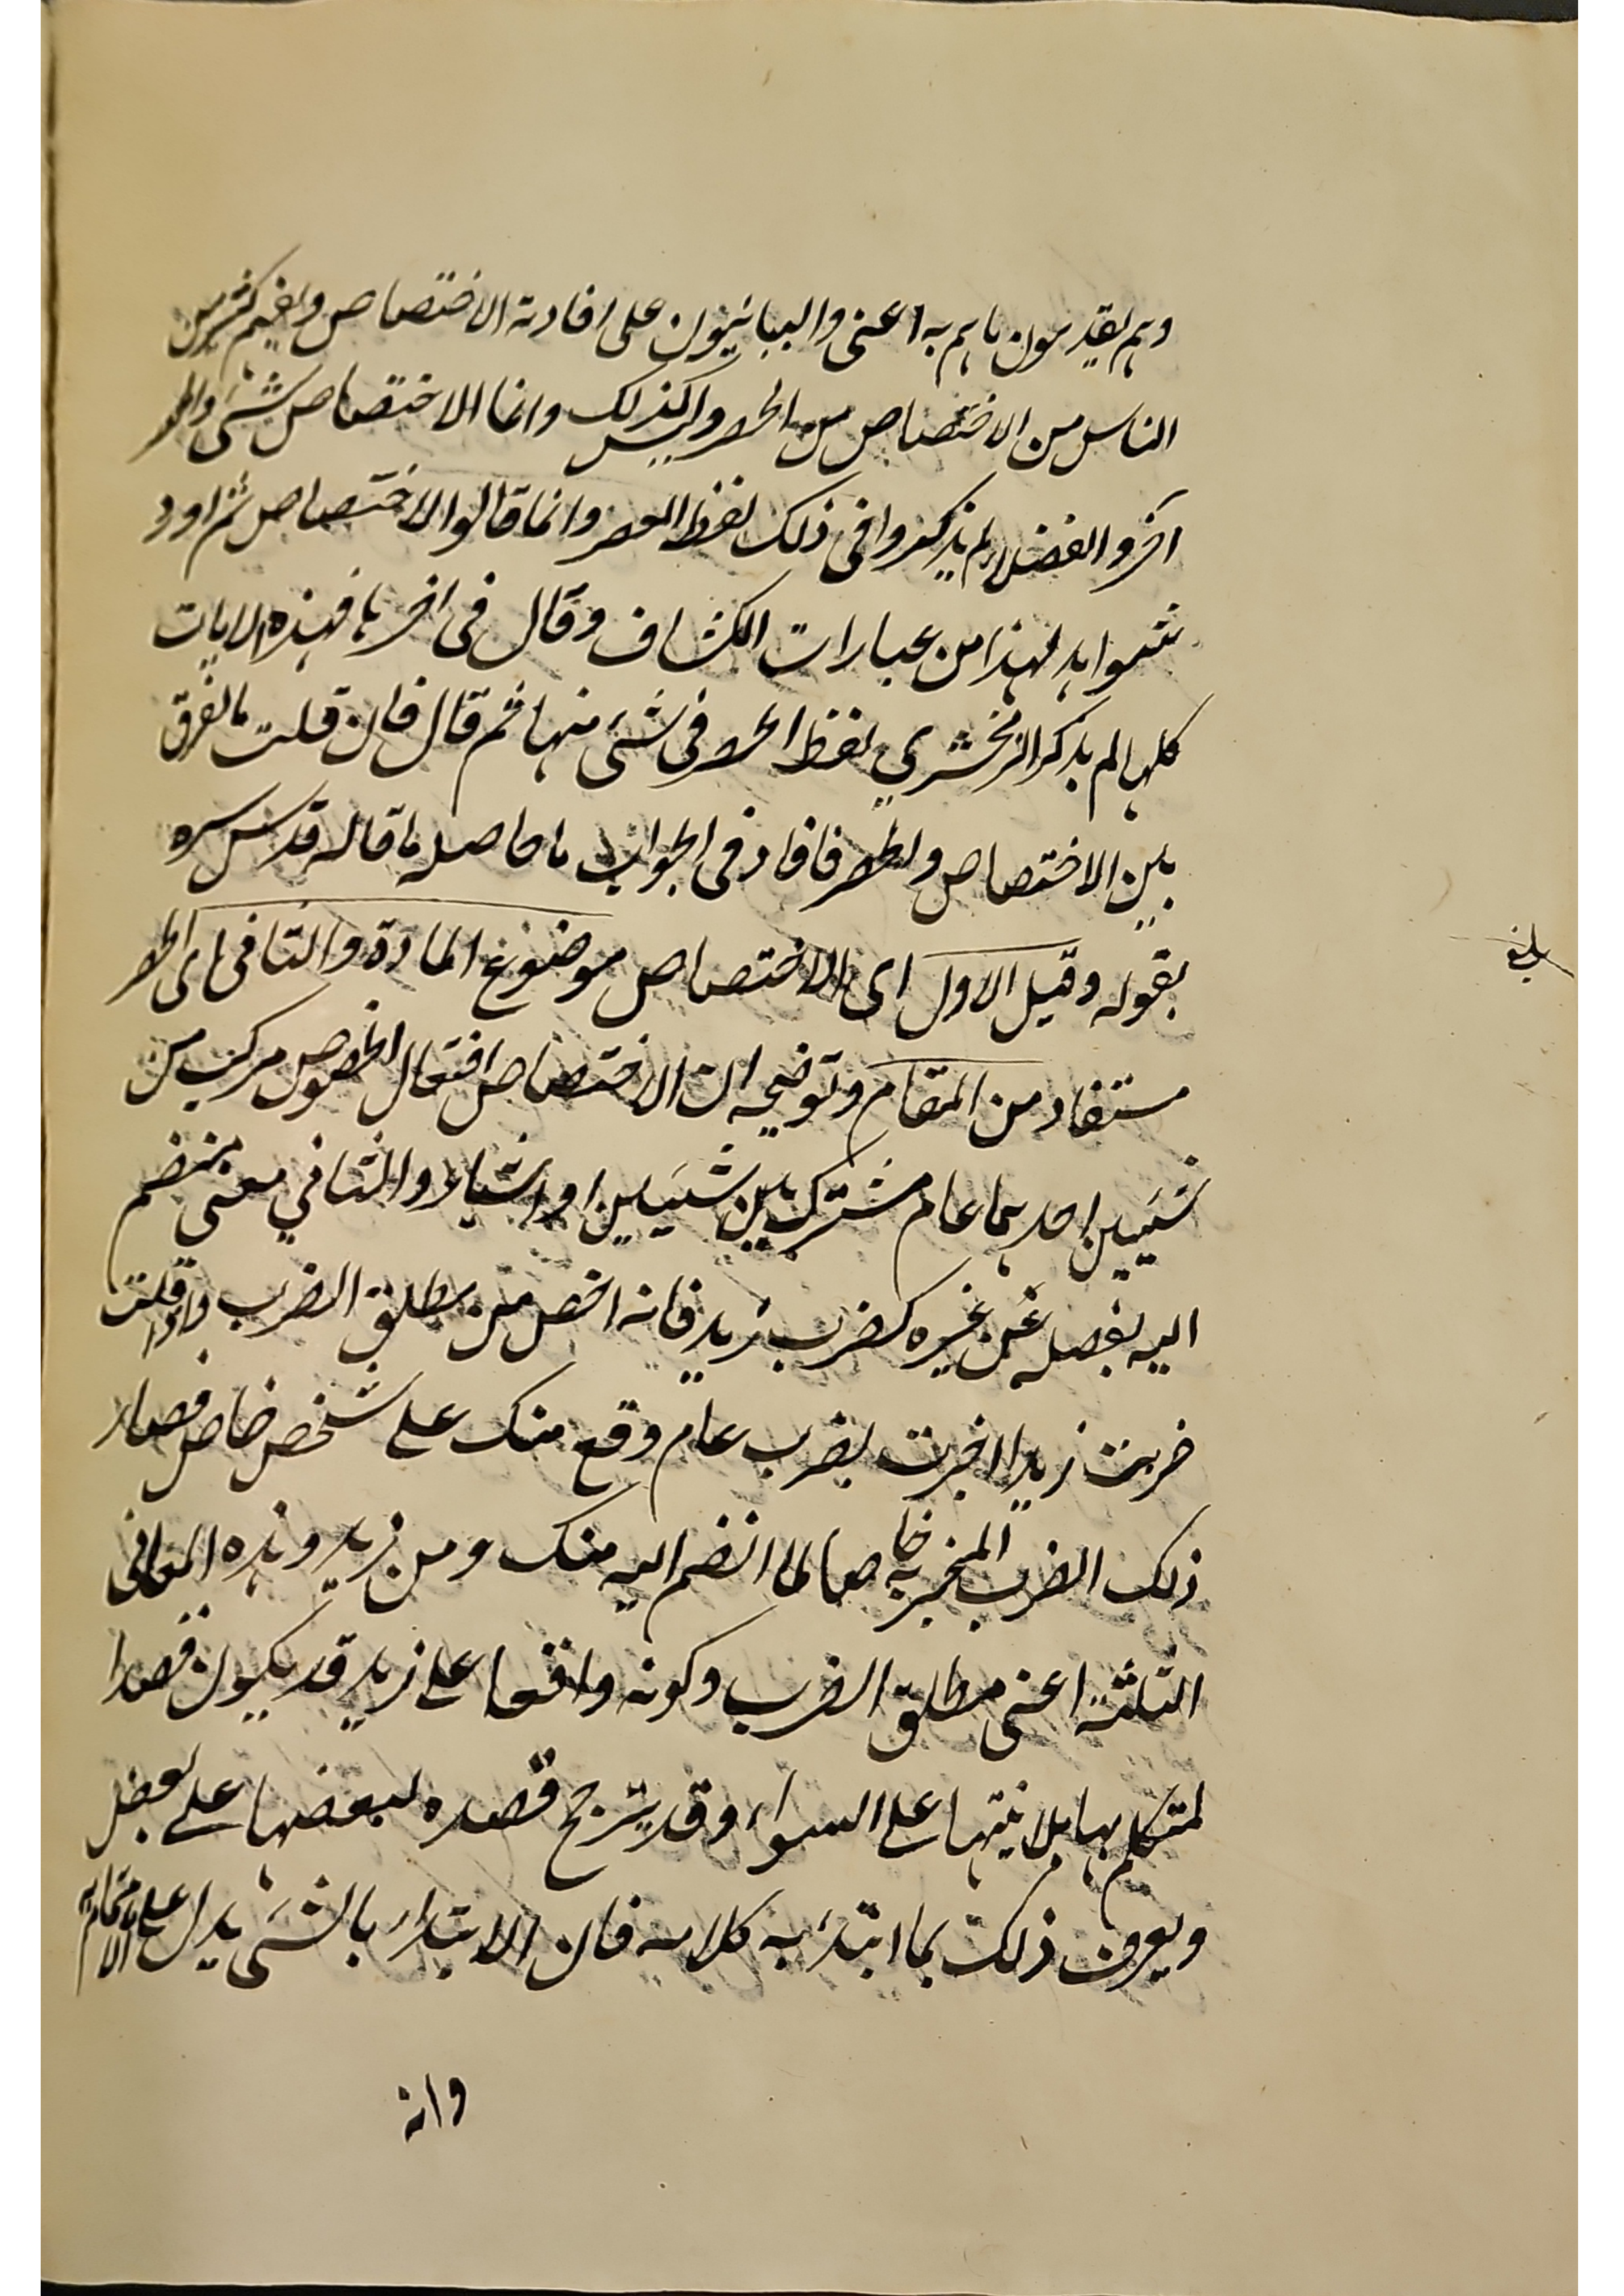 وهم يقدمون ما هم به اعنى والبيانيون على افادته الاختصاص ويفهم كثير من
الناس من الاختصاص من الحصر وليس كذلك وانما الاختصاص شئ والحصر
آخر والفضلاء لم يذكروا فى ذلك لفظ الحصر وانما قالوا الاختصاص ثم اورد
شواهد لهذا من عبارات الكشاف وقال فى اخرها فهذه الايات
كلها لم يذكر الزمخشري لفظ الحصر فى شئ منها ثم قال فان قلت ما الفرق
بين الاختصاص والحصر فافاد فى الجواب ما حاصله ما قاله قدس سره
بقوله وقيل الاول اى الاختصاص موضوع المادة والثانى اى الحصر
مستفاد من المقام وتوضيحه ان الاختصاص افتعال الخصوص مركب من
شيئين احدهما عام مشترك بين شيئين او اشياء والثاني معنى منضم
اليه يفصله عن غيره كضرب زيد فانه اخص من مطلق الضرب واذا قلت
ضربت زيدا اخبرت بضرب عام وقع منك على شخص خاص فصار
ذلك الضرب المخبر به خاصا لما انضم اليه منك ومن زيد وهذه المعانى
الثلثة اعنى مطلق الضرب وكونه واقعا على زيد قد يكون قصدا
لمتكلم بها بلا نيتها على السواء وقد يترجح قصده لبعضها على بعض
ويعرف ذلك بما ابتدئ به كلامه فان الابتداء بالشئ يدل على الاهتمام به
وانه